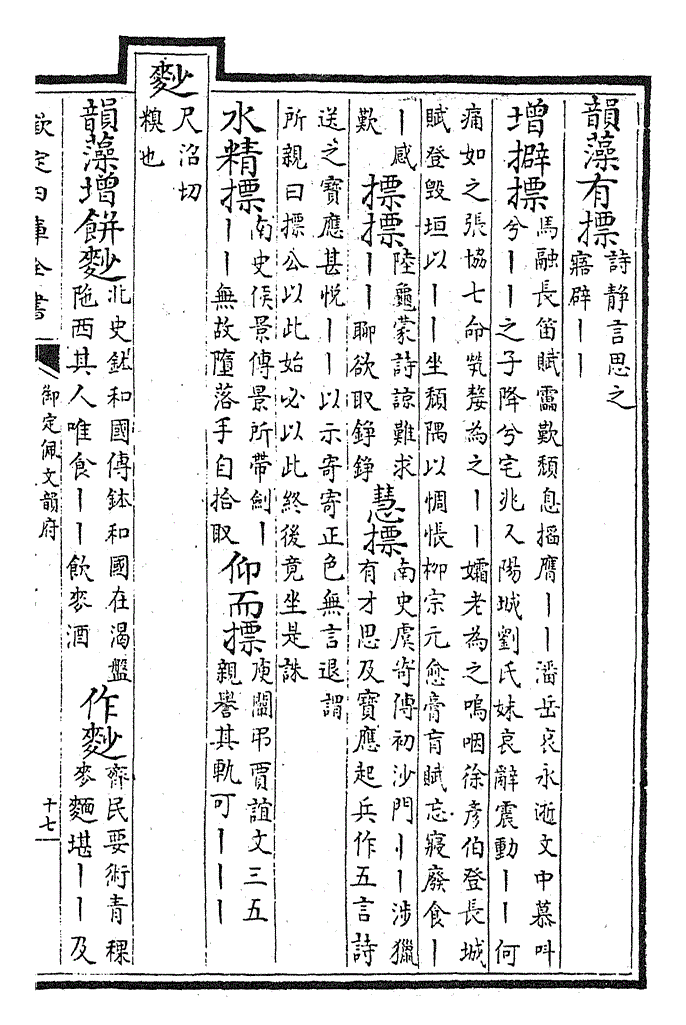 韻藻有摽
詩静言思之
寤辟丨丨
增擗摽
馬融長笛賦靁歎頽息搯膺丨丨潘岳哀永逝文中慕叫
兮丨丨之子降兮宅兆又陽城劉氏妹哀辭震動丨丨何
痛如之張協七命煢嫠為之丨丨孀老為之嗚咽徐彦伯登長城
賦登毁垣以丨丨坐頽隅以惆悵柳宗元愈膏肓賦忘寢廢食丨
丨感
歎
摽摽
陸龜蒙詩諒難求
丨丨聊欲取錚錚
慧摽
南史虞寄傳初沙門丨丨涉獵
有才思及寶應起兵作五言詩
送之寶應甚悦丨丨以示寄寄正色無言退謂
所親曰摽公以此始必以此終後竟坐是誅
水精摽
南史侯景傳景所帶劍丨
丨丨無故墮落手自拾取
仰而摽
庾闡弔賈誼文三五
親譽其軌可丨丨丨
麨
尺沼切
糗也
韻藻增餅麨
北史鉢和國傳鉢和國在渴盤
陁西其人唯食丨丨飲麥酒
作麨
齊民要術青稞
麥麵堪丨丨及
欽定四庫全書
御定佩文韻府
十七